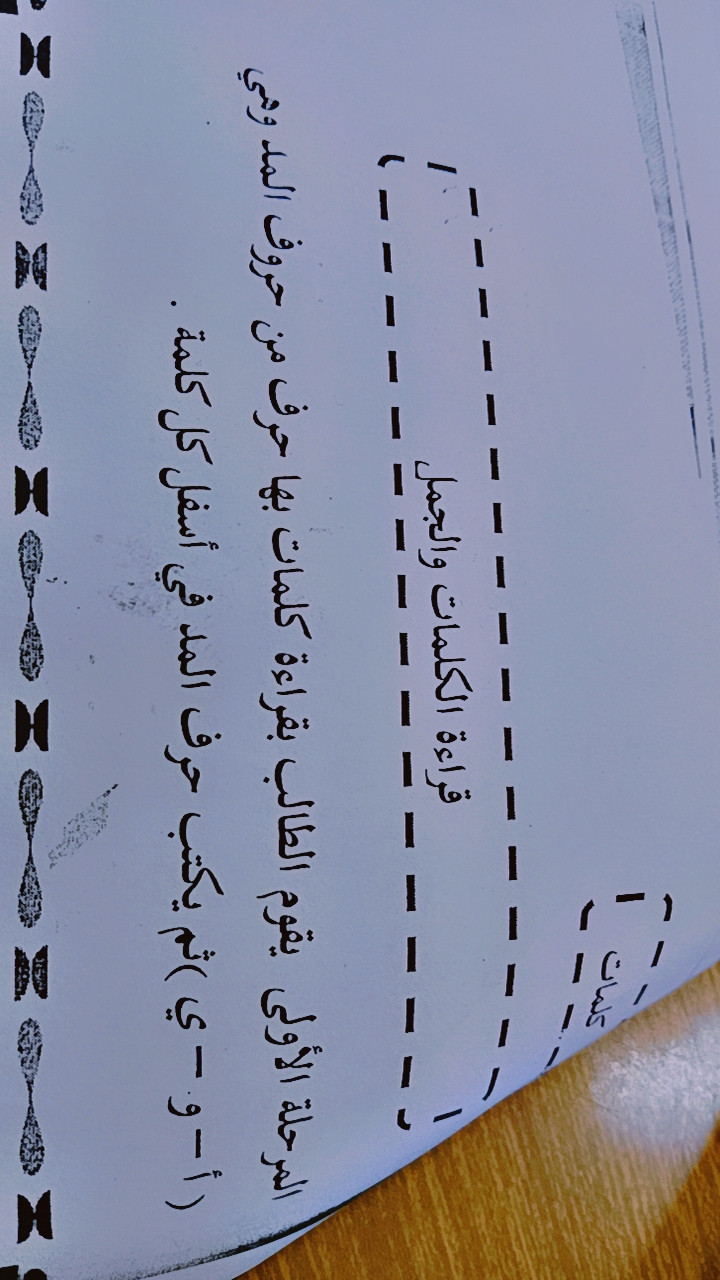 كلمات
قراءة الكلمات والجمل
المرحلة الأولى يقوم الطالب بقراءة كلمات بها حرف من حروف المد وهي
( أ – و – ي ) ثم يكتب حرف المد في أسفل كل كلمة .